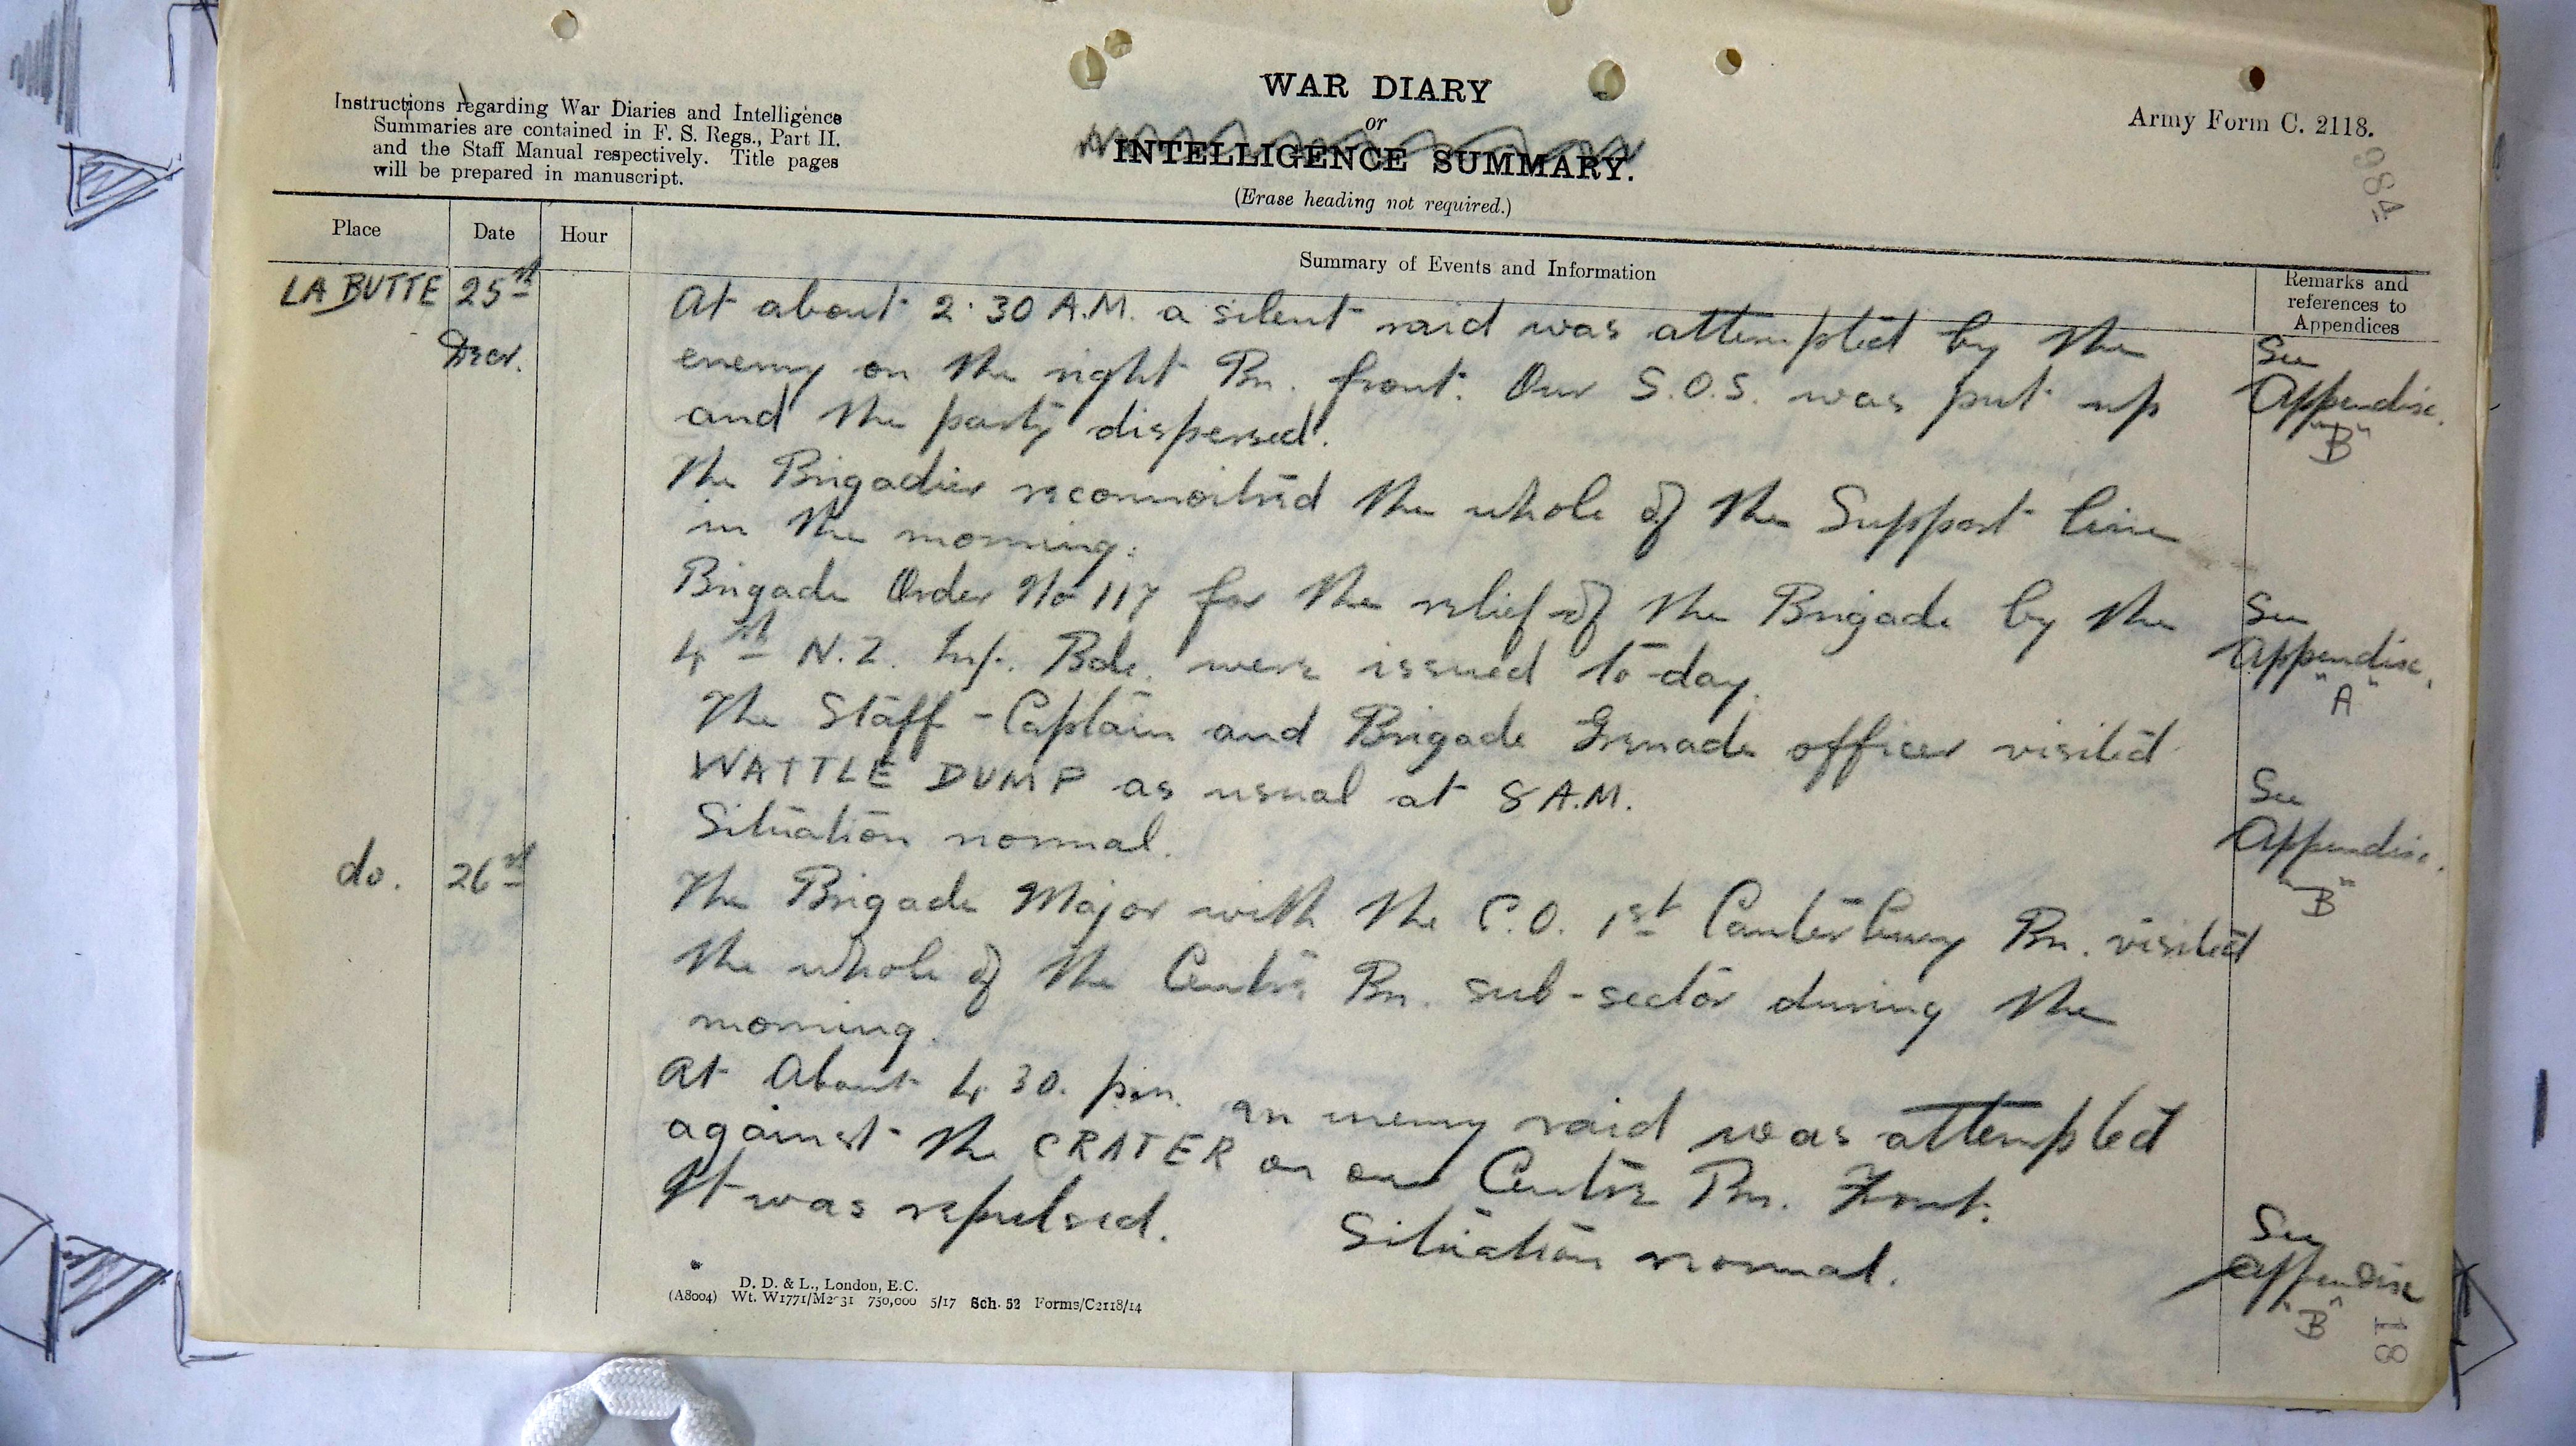 Instructions regarding War Diaries and Intelligence
Summaries are contained in F. S. Regs., Part II.
and the Staff Manual respectively. Title pages
will be prepared in manuscript.
WAR DIARY
or
INTELLIGENCE SUMMARY.
(Erase heading not required.)
Army Form C. 2118.
984
Place Date Hour
Summary of Events and Information
Remarks and
references to
Appendices
LA BUTTE 25th
Decr.
At about 2.30 A.M. a silent raid was attempted by the
enemy on the right Bn. front. Our S.O.S. was put up
and the party dispersed.
See
Appendix.
"B"
The Brigadier reconnoitred the whole of the Support line
in the morning.
Brigade Order No 117 for the relief of the Brigade by the
4th N.Z. Inf. Bde. were issued to-day.
See
Appendix.
"A"
The Staff-Captain and Brigade Grenade officer visited
WATTLE DUMP as usual at 8 A.M.
Situation normal.
See
Appendix.
"B"
do. 26th
The Brigade Major with the C.O. 1st Canterbury Bn. visited
the whole of the Centre Bn. sub-sector during the
morning.
At About 4.30. p.m. an enemy raid was attempted
against the CRATER on our Centre Bn. Front.
It was repulsed. Situation normal.
See
Appendix
"B"
18
D. D. & L., London, E.C.
(A8004) Wt. W1771/M2031 750,000 5/17 Sch. 52 Forms/C2118/14